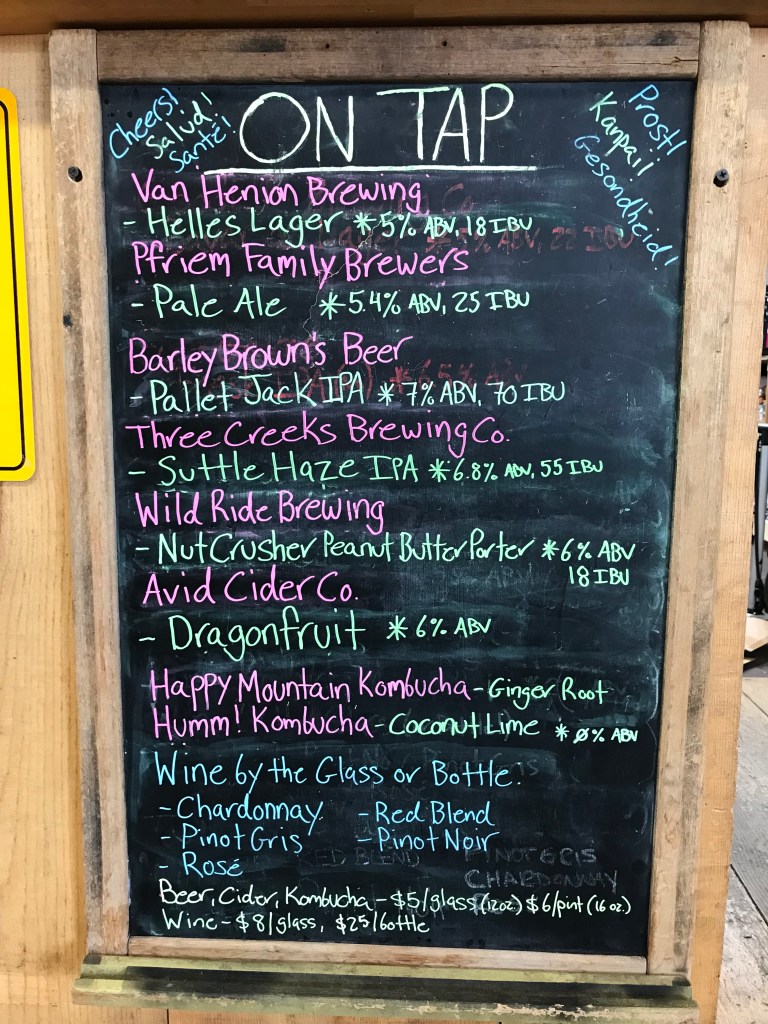 Cheers!
Salud!
Santé!
ON TAP
Prost!
Kanpaii
Gesondheid!
Van Henion Brewing
- Helles Lager *5% ABV, 18 IBU
Pfriem Family Brewers
- Pale Ale *5.4% ABV, 25 IBU
Barley Brown's Beer
- Pallet Jack IPA * 7% ABV, 70 IBU
Three Creeks Brewing Co.
- Suttle Haze IPA *6.8% ABV, 55 IBU
Wild Ride Brewing
- Nut Crusher Peanut Butter Porter *6% ABV
18 IBU
Avid Cider Co.
- Dragonfruit *6% ABV
Happy Mountain Kombucha - Ginger Root
Humm! Kombucha - Coconut Lime *0% ABV
Wine by the Glass or Bottle:
- Chardonnay - Red Blend
- Pinot Gris - Pinot Noir
- Rosé
RED BLEND PINOT GRIS
CHARDONNAY
Beer, Cider, Kombucha - $5/glass (12oz.) $6/pint (16 oz.)
Wine - $8/glass, $25/bottle